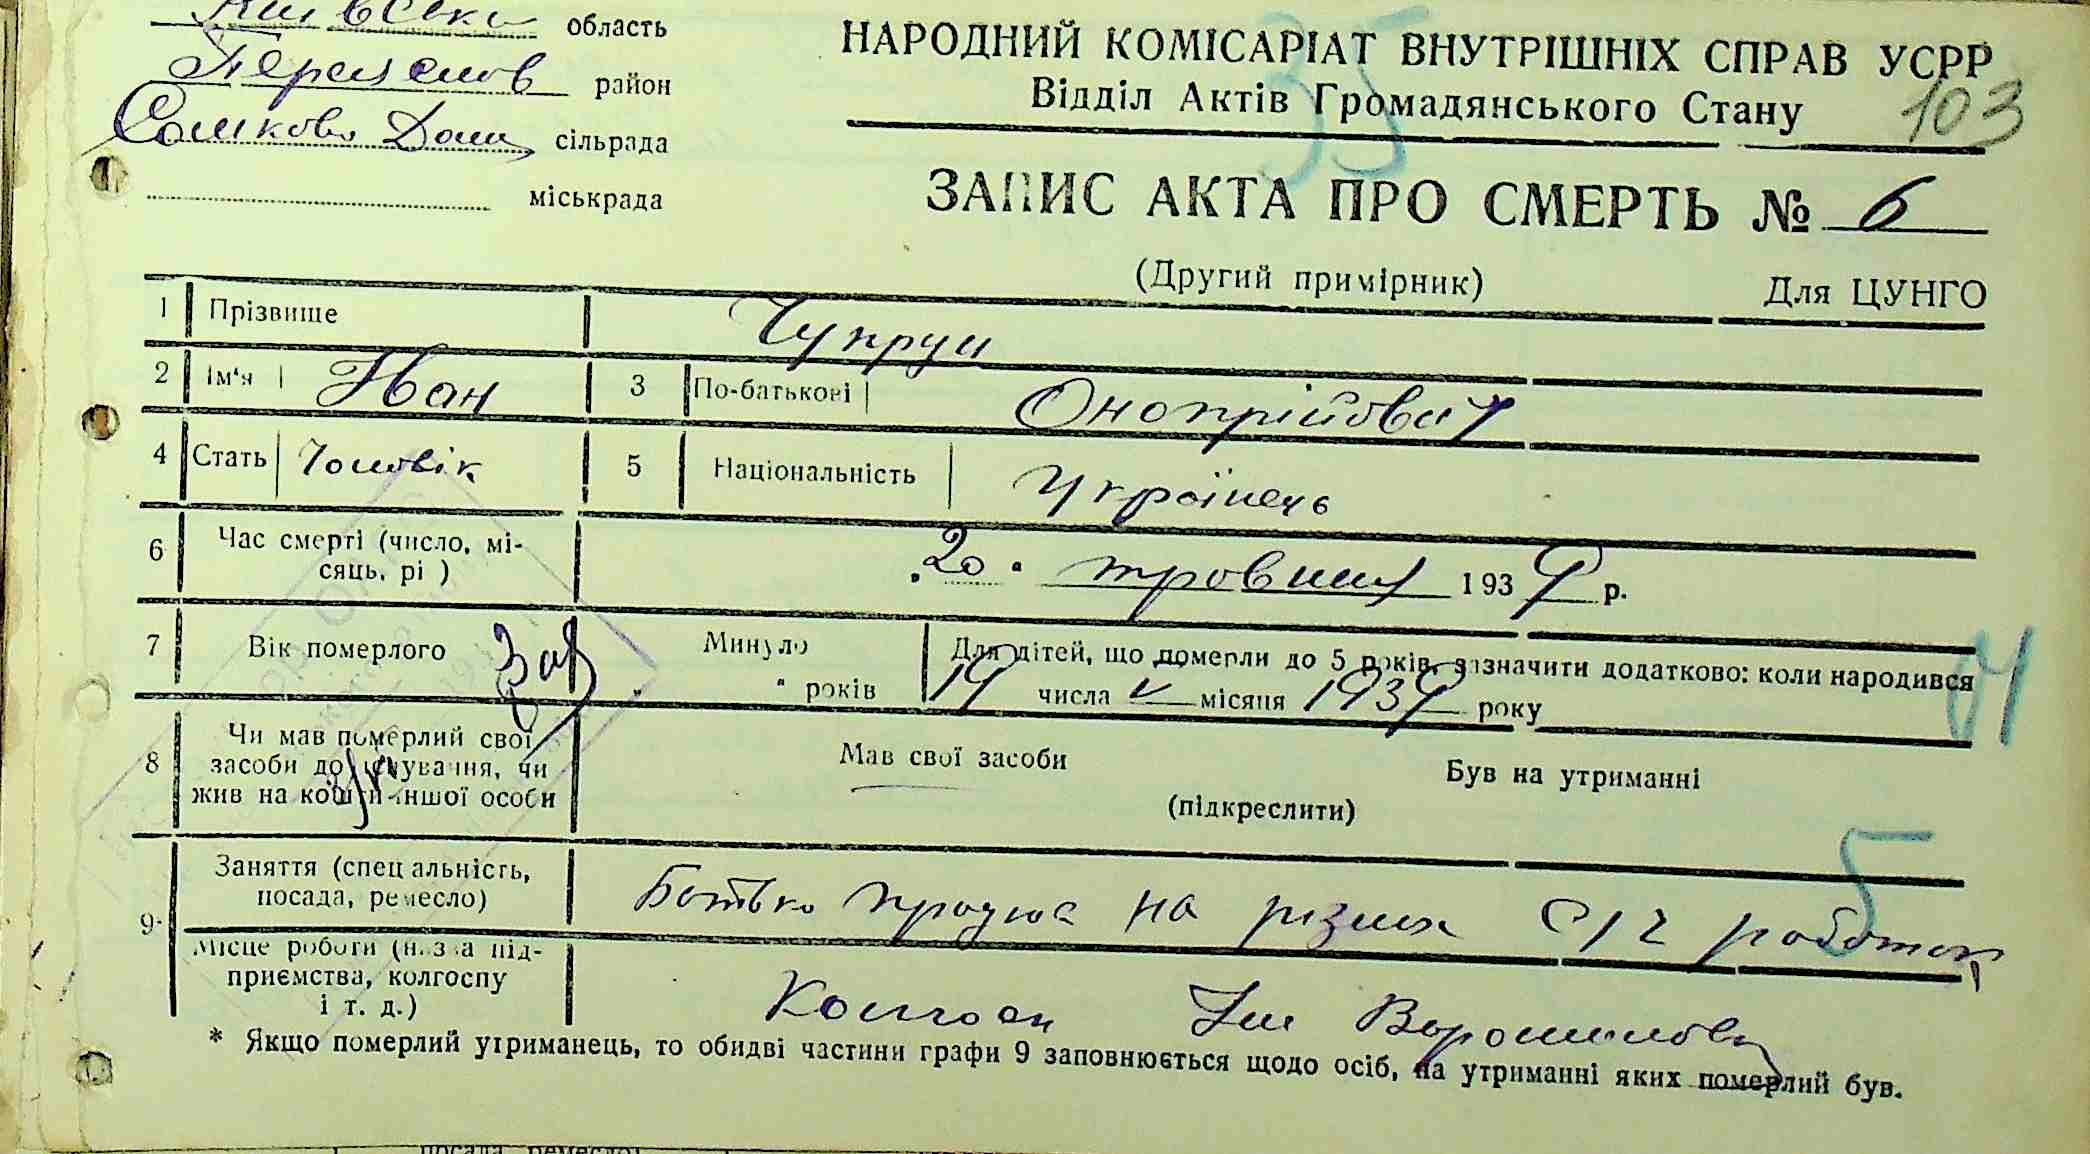 Київська область
Переяслов район
Сошково Дом сільрада
міськрада
НАРОДНИЙ КОМІСАРІАТ ВНУТРІШНІХ СПРАВ УСРР
Відділ Актів Громадянського Стану
103
35
ЗАПИС АКТА ПРО СМЕРТЬ № 6
(Другий примірник) Для ЦУНГО
1 Прізвище Чупрун
2 Ім'я Іван 3 По-батькові Онопрійович
4 Стать Чоловік 5 Національність Українець
6 Час смерті (число, місяць, рі ) „20" тровник 1939 р.
7 Вік померлого Минуло " " років
Для дітей, що померли до 5 років, зазначити додатково: коли народився
19 числа V місяця 1939 року
8 Чи мав померлий свої
засоби до існування, чи
жив на кошти іншої особи
Мав свої засоби Був на утриманні
(підкреслити)
9 Заняття (спеціальність,
посада, ремесло)
Батько працює на різних с/г роботах
5
Місце роботи (назва під-
приємства, колгоспу
і т. д.)
Колгосп Ім Ворошилова
* Якщо померлий утриманець, то обидві частини графи 9 заповнюється щодо осіб, на утриманні яких померлий був.